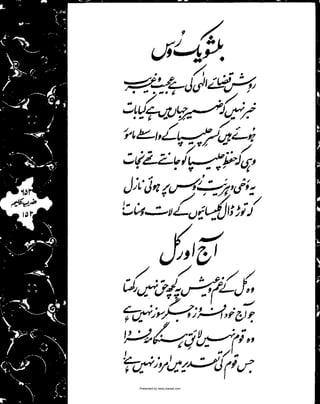 بلشویک روس
روشِ قضائے الٰہی کی ہے عجیب و غریب
خبر نہیں کہ ضمیرِ جہاں میں ہے کیا بات
ہوئے ہیں کسرِ چلیپا کے واسطے مامور
وہی کہ حفظِ چلیپا کو جانتے تھے نجات
یہ وحیِ دہریتِ روس پر ہوئی نازل
کہ توڑ ڈال کلیسائیوں کے لات و منات!
آج اور کل
وہ کل کے غم و عیش پہ کچھ حق نہیں رکھتا
جو آج خود افروز و جگر سوز نہیں ہے
وہ قوم نہیں لائقِ ہنگامۂ فردا
جس قوم کی تقدیر میں امروز نہیں ہے!
ضربِ کلیم
۱۵۲
Presented by www.ziaraat.com